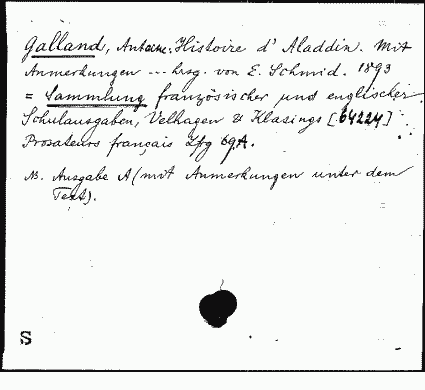 Galland, Antoine: Histoire d'Aladdin. Mit
Anmerkungen --- hrsg. von E. Schmid. 1893
= Sammlung französischer und englischer
Schulausgaben, Velhagen & Klasings [64224]
Prosateurs français Lfg 69A.
NB. Ausgabe A (mit Anmerkungen unter dem
Text).
S